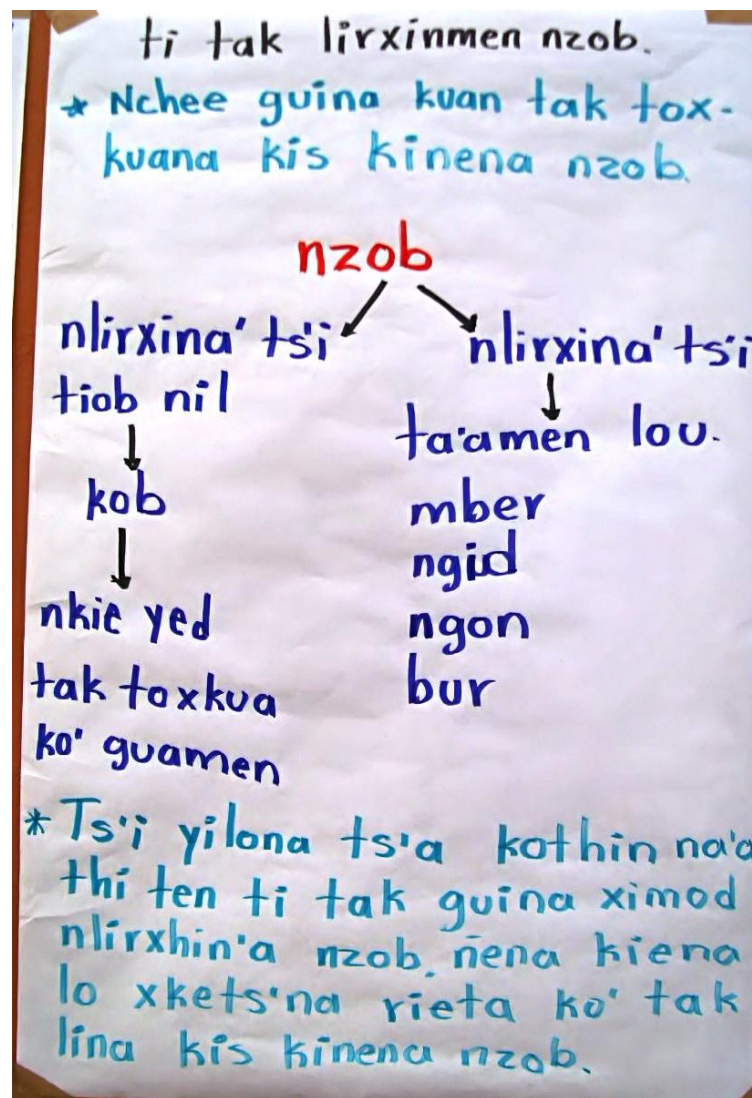 ti tak lirxinmen nzob.
* Nchee guina kuan tak tox-
kuana kis kinena nzob.
nzob
nlirxina' ts'i
tiob nil
kob
nkie yed
tak toxkua
ko' guamen
nlirxina' ts'i
ta'amen lou.
mber
ngid
ngon
bur
* Ts'i yilona ts'a kothin na'a
thi ten ti tak guina ximod
nlirxhin'a nzob. nena kiena
lo xkets'na rieta ko' tak
lina kis kinena nzob.